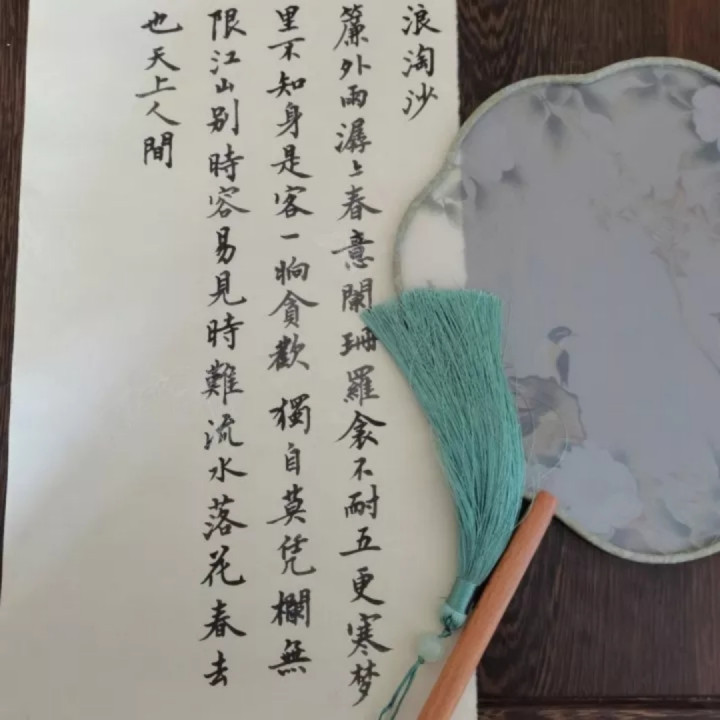 浪淘沙
簾外雨潺〻春意闌珊羅衾不耐五更寒梦
里不知身是客一晌貪歡獨自莫凭欄無
限江山别時容易見時難流水落花春去
也天上人間